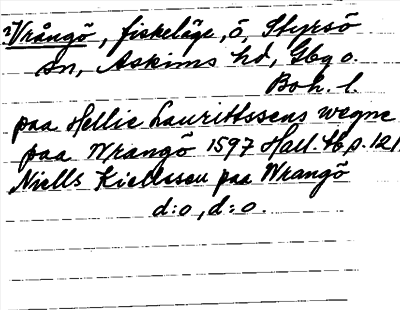 2Vrångö, fiskeläge, ö, Styrsö
sn, Askims hd, Gbg o.
Boh. l.
paa Hellie Laurittssens wegne
paa Wrangö 1597 Hall. tb. p. 121.
Niells Kiellssen paa Wrangö
d:o, d:o.